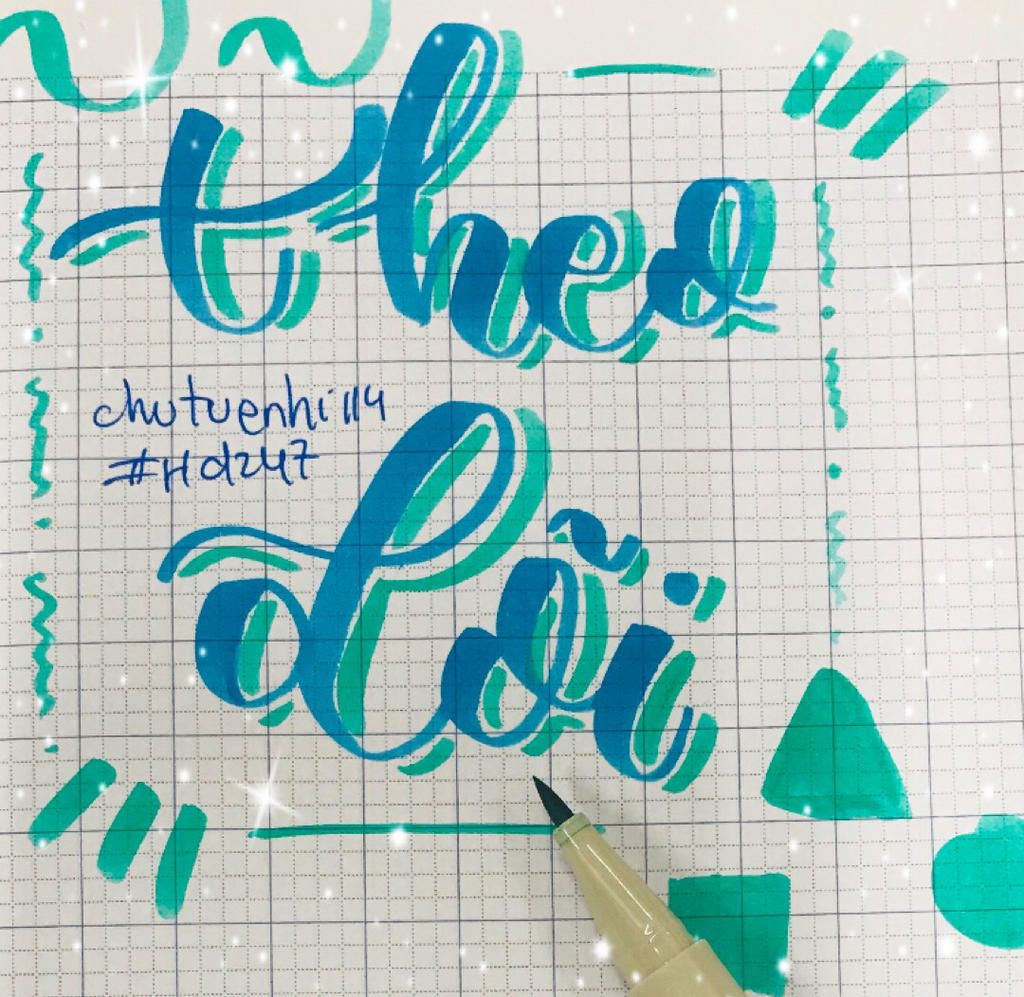 theo
chutuenhi114
#Hd247
dõi